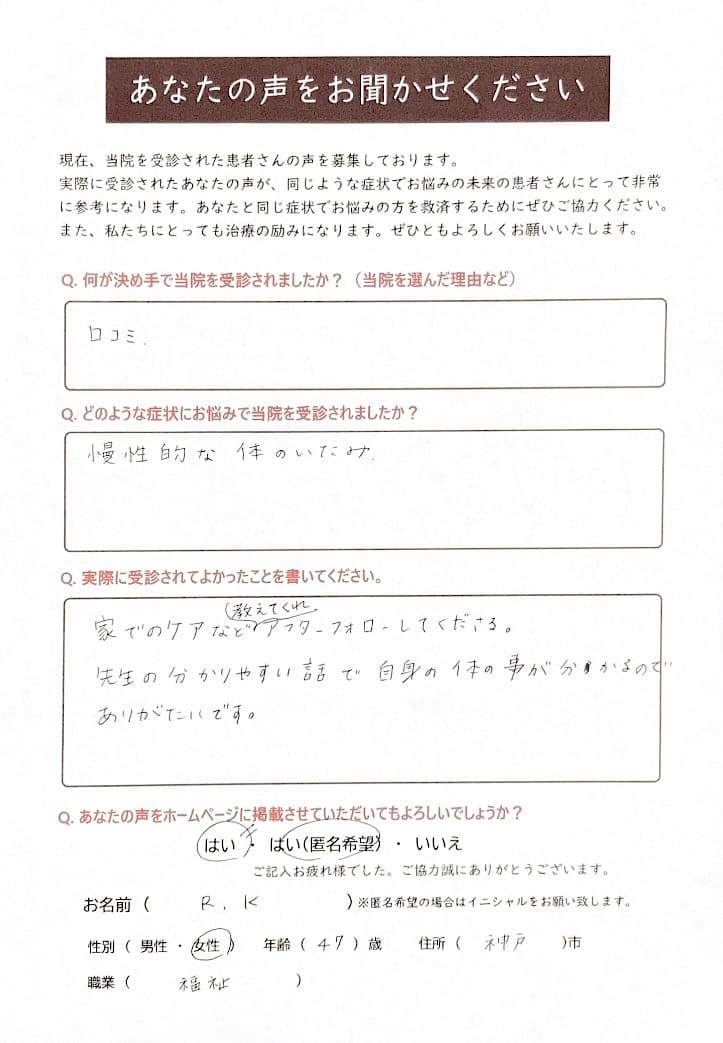 あなたの声をお聞かせください
現在、当院を受診された患者さんの声を募集しております。
実際に受診されたあなたの声が、同じような症状でお悩みの未来の患者さんにとって非常
に参考になります。あなたと同じ症状でお悩みの方を救済するためにぜひご協力ください。
また、私たちにとっても治療の励みになります。ぜひともよろしくお願いいたします。
Q. 何が決め手で当院を受診されましたか？（当院を選んだ理由など）
口コミ.
Q. どのような症状にお悩みで当院を受診されましたか？
慢性的な 体のいたみ.
Q. 実際に受診されてよかったことを書いてください。
教えてくれ
家でのケアなどアフターフォローしてくださる。
先生の分かりやすい話で自身の体の事が分かるので
ありがたいです。
Q. あなたの声をホームページに掲載させていただいてもよろしいでしょうか？
はい ・ はい(匿名希望) ・ いいえ
ご記入お疲れ様でした。ご協力誠にありがとうございます。
お名前（ R. K ）※匿名希望の場合はイニシャルをお願い致します。
性別（ 男性 ・ 女性 ） 年齢（ 47 ）歳 住所（ 神戸 ）市
職業（ 福祉 ）